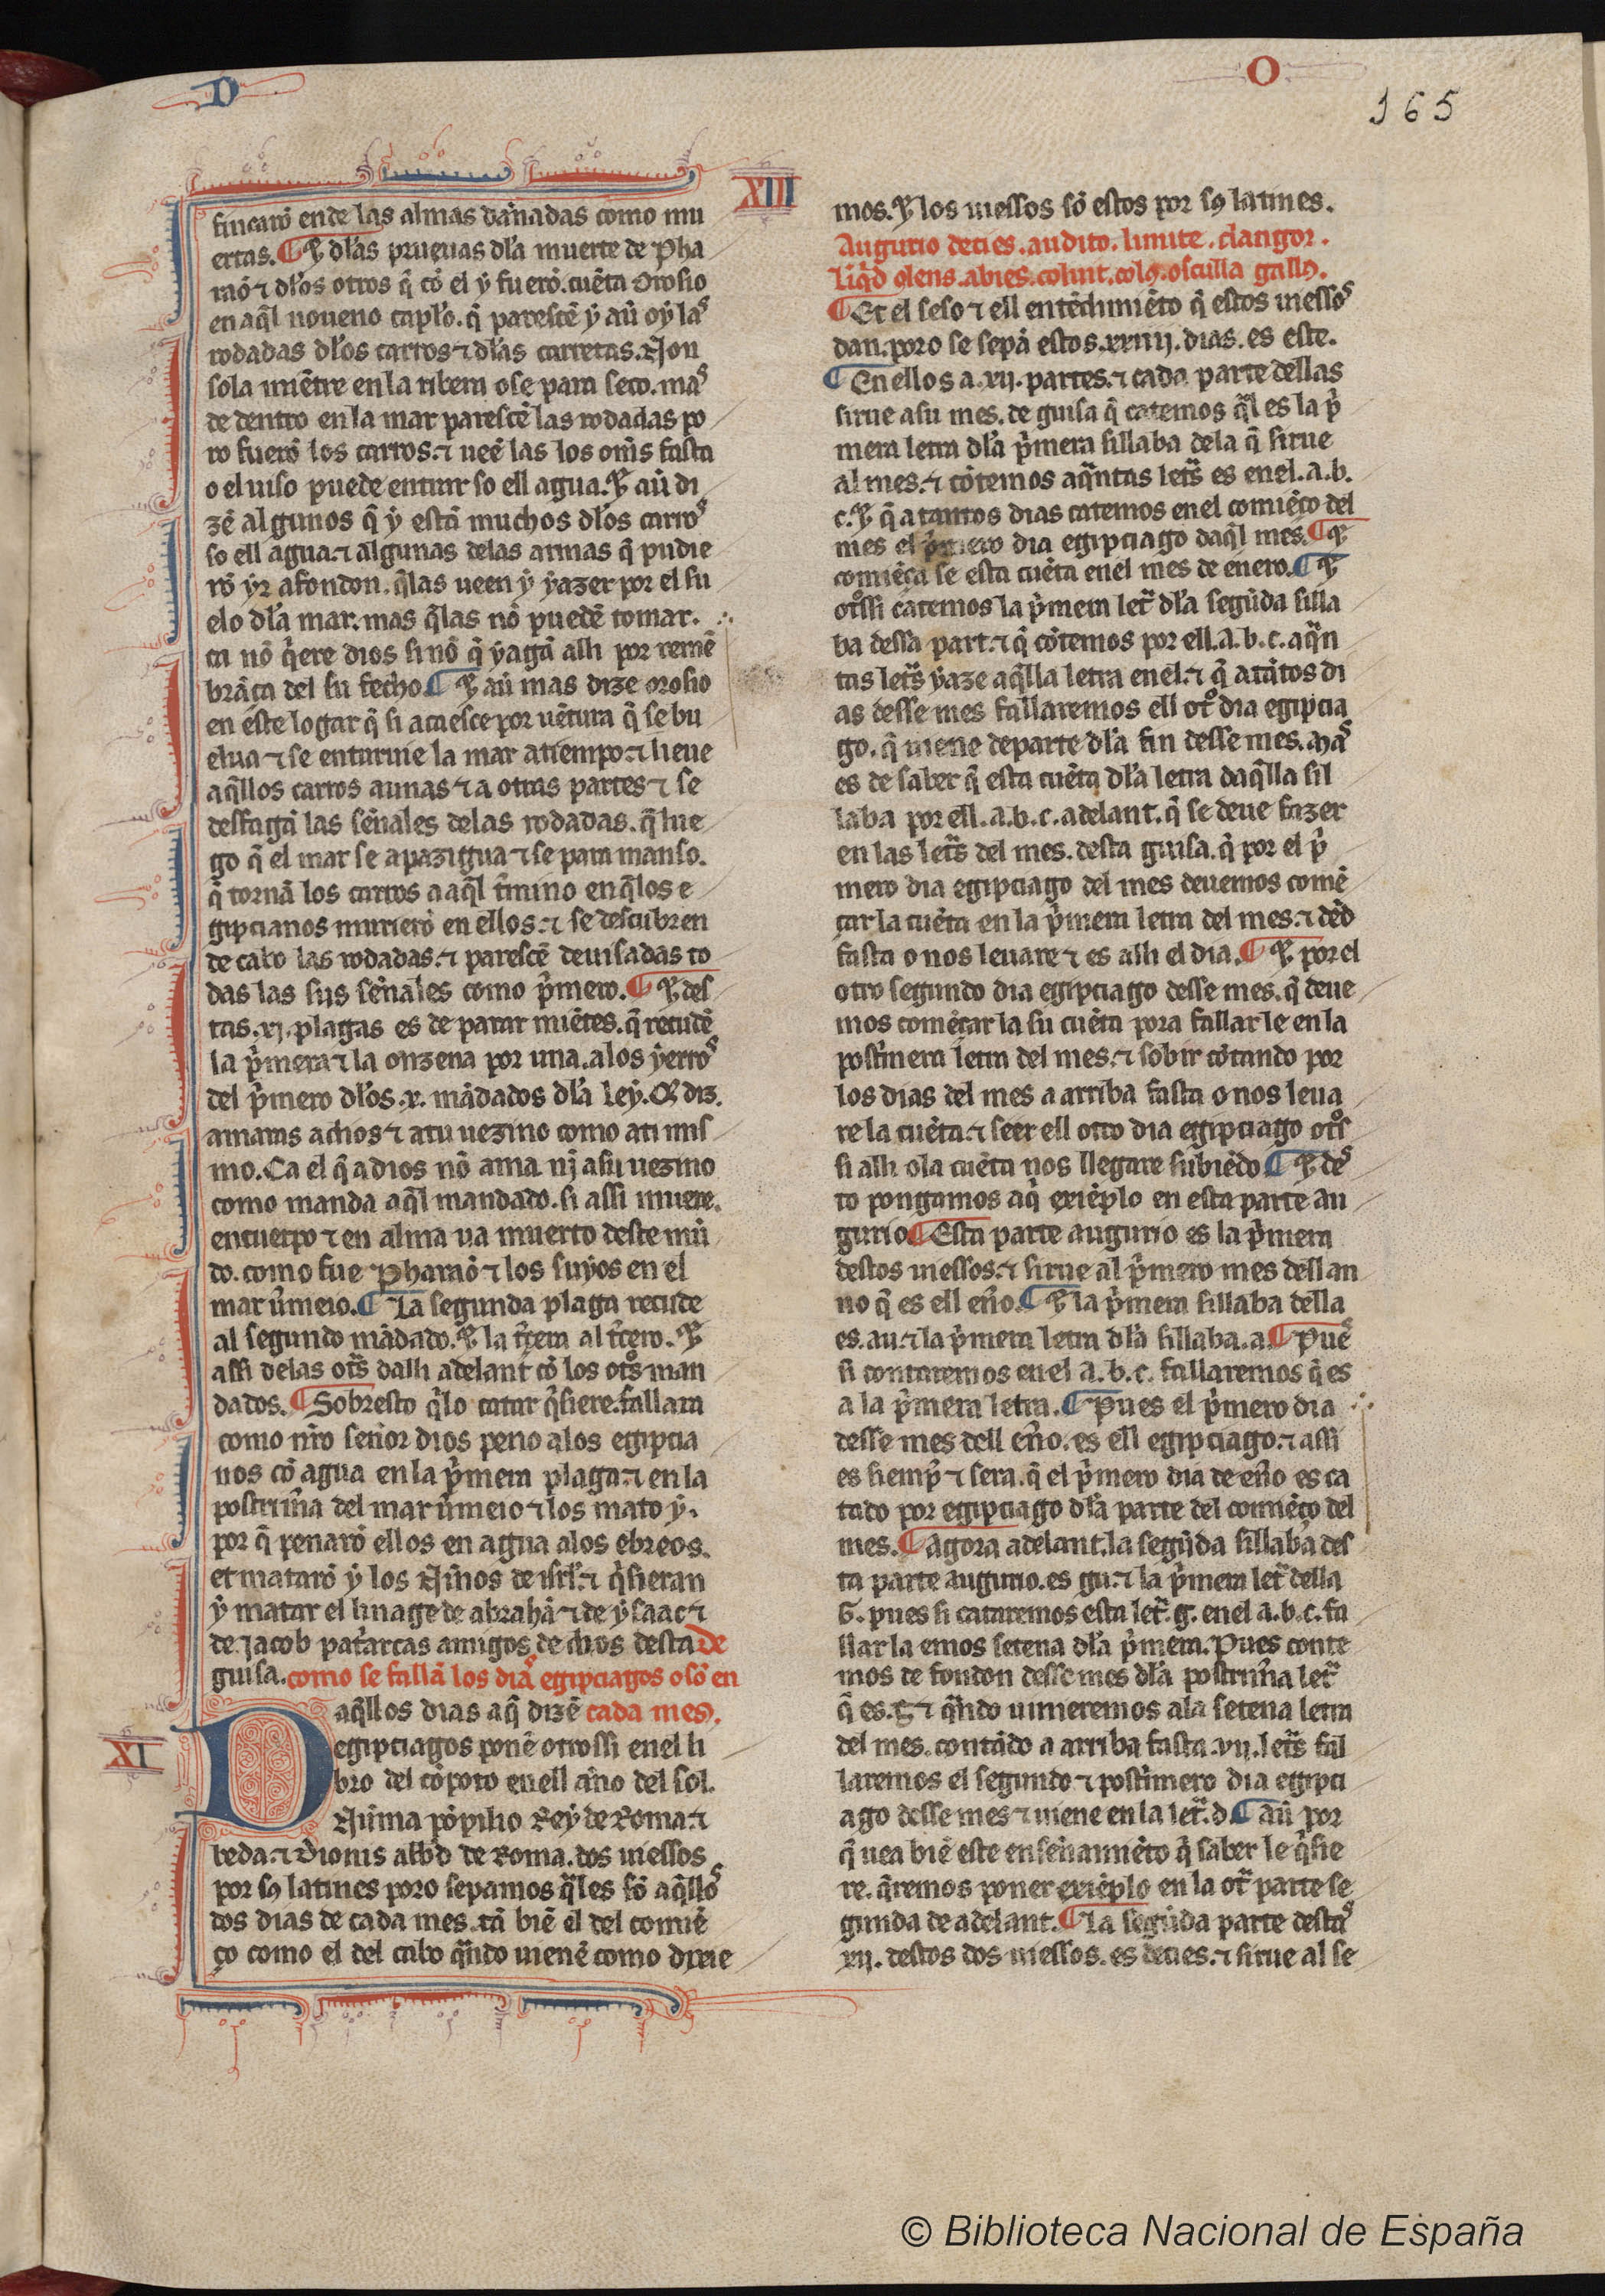 D
O
165
XIII
fincarõ ende las almas dañadas como mu
ertas. ¶ Et dłas prueuas dła muerte de Pha
raõ ⁊ dłos otros q̃ cõ el ẏ fuerõ. cuẽta Orosio
en aq̃l noueno capło. q̃ parescẽ ẏ aũ oẏ las
rodadas dłos carros ⁊ dłas carretas. Non
sola miẽtre en la ribera o se para seco. mas
de dentro en la mar parescẽ las rodadas po
ro fuerõ los carros. ⁊ ueẽ las los om̃s fasta
o el uiso puede entrar so ell agua. Et aũ di
zẽ algunos q̃ ẏ estã muchos dłos carros
so ell agua. ⁊ algunas delas armas q̃ pudie
rõ ẏr afondon. q̃las ueen ẏ ẏazer por el su
elo dła mar. mas q̃las nõ puedẽ tomar.
ca nõ q̃ere dios si nõ q̃ ẏagã alli por remẽ
brãça del su fecho. ¶ Et aũ mas dize orosio
en este logar q̃ si acaesce por uẽtura q̃ se bu
elua ⁊ se enturuie la mar atiempo. ⁊ lieue
aq̃llos carros a unas ⁊ a otras partes ⁊ se
desfagã las señales delas rodadas. q̃ lue
go q̃ el mar se apazigua ⁊ se para manso.
q̃ tornã los carros a aq̃l t̃mino en q̃ los e
gipcianos murierõ en ellos. ⁊ se descubren
de cabo las rodadas. ⁊ parescẽ deuisadas to
das las sus señales como p̃mero. ¶ Et des
tas .xj. plagas es de parar miẽtes. q̃ recudẽ
la p̃mera ⁊ la onzena por una. a los ẏerros
del p̃mero dłos .x. mãdados dła leẏ. Q̃ diz.
amaras a dios ⁊ atu uezino como ati mis
mo. Ca el q̃ a dios nõ ama nj̃ asu uezino
como manda aq̃l mandado. si assi muere.
en cuerpo ⁊ en alma ua muerto deste mũ
do. como fue Pharaõ ⁊ los suẏos en el
mar u᷉meio. ¶ La segunda plaga recude
al segundo mãdado. Et la t̃cera al t̃cero. Et
assi delas ot᷉s dalli adelant cõ los ot᷉s man
dados. ¶ Sobresto q̃ lo catar q̃siere. fallara
como nr̃o señor dios peno a los egipcia
nos cõ agua en la p̃mera plaga. ⁊ en la
postrim᷉a del mar u᷉meio ⁊ los mato ẏ.
por q̃ penarõ ellos en agua a los ebreos.
et matarõ ẏ los Niños de isrł. ⁊ q̃sieran
ẏ matar el linage de abrahã ⁊ de ẏsaac ⁊
de jacob pat᷉arcas amigos de dios desta De
guisa. como se fallã los dias egipciagos o sõ en
aq̃llos dias aq̃ dizẽ cada mes.
XI
D egipciagos ponẽ otrossi enel li
bro del cõpoto en ell año del sol.
Nũma põpilio Reẏ de Roma. ⁊
beda. ⁊ Dionis abb̃d de Roma. dos uiessos
por sꝯ latines poro sepamos q̃les sõ aq̃llos
dos dias de cada mes. tã biẽ el del comiẽ
ço como el del cabo q̃ndo uienẽ como dixie
mos. Et los uiessos sõ estos por sꝯ latines.
Augurio decies. audito. limite. clangor.
Liq̃d olens. abies. coluit. colꝯ. osculla gallꝯ.
¶ Et el seso ⁊ ell entẽdimiẽto q̃ estos uiessos
dan. poro se sepã estos .xxiiij. dias. es este.
¶ En ellos a .xij. partes. ⁊ cada parte dellas
sirue asu mes. de guisa q̃ catemos q̃l es la p̃
mera letra dła p̃mera sillaba dela q̃ sirue
al mes. ⁊ cõtemos aq̃ntas let᷉s es enel .a.b.
c. Et q̃ a tantos dias catemos enel comiẽço del
mes el p̃mero dia egipciago daq̃l mes. ¶ Et
comiẽça se esta cuẽta enel mes de enero. ¶ Et
ot᷉ssi catemos la p̃mera let᷉ dła segũda silla
ba dessa part. ⁊ q̃ cõtemos por ell .a.b.c. aq̃n
tas let᷉s ẏaze aq̃lla letra enel. ⁊ q̃ a tãtos di
as desse mes fallaremos ell ot᷉ dia egipcia
go. q̃ uiene departe dła fin desse mes. Mas
es de saber q̃ esta cuẽta dła letra daq̃lla sil
laba por ell .a.b.c. adelant. q̃ se deue fazer
en las let᷉s del mes. desta guisa. q̃ por el p̃
mero dia egipciago del mes deuemos comẽ
çar la cuẽta en la p̃mera letra del mes. ⁊ dẽd
fasta o nos leuare ⁊ es alli el dia. ¶ Et por el
otro segundo dia egipciago desse mes. q̃ deue
mos comẽçar la su cuẽta pora fallar le en la
post᷉mera letra del mes. ⁊ sobir cõtando por
los dias del mes a arriba fasta o nos leua
re la cuẽta. ⁊ seer ell otro dia egipciago ot᷉s
si alli o la cuẽta nos llegare subiẽdo. ¶ Et des
to pongamos aq̃ exiẽplo en esta parte au
gurio. ¶ Esta parte augurio es la p̃mera
destos uiessos. ⁊ sirue al p̃mero mes dell an
no q̃ es ell eñ̃o. ¶ Et la p̃mera sillaba della
es. au. ⁊ la p̃mera letra dła sillaba .a. ¶ Pues
si contaremos enel .a.b.c. fallaremos q̃ es
a la p̃mera letra. ¶ Pues el p̃mero dia
desse mes dell eñ̃o. es ell egipciago. ⁊ assi
es siemp̃ ⁊ sera. q̃ el p̃mero dia de eñ̃o es ca
tado por egipciago dła parte del comiẽço del
mes. ¶ Agora adelant. la segũda sillaba des
ta parte augurio. es gu. ⁊ la p̃mera let᷉ della
G. pues si cataremos esta let᷉ .g. enel .a.b.c. fa
llar la emos setena dła p̃mera. Pues conte
mos de fondon desse mes dła postrim᷉a let᷉
q̃ es .g. ⁊ q̃ndo uinieremos ala setena letra
del mes. contãdo a arriba fasta .vij. let᷉s fal
laremos el segundo. ⁊ post᷉mero dia egipci
ago desse mes ⁊ uiene en la let᷉ .d. ¶ aũ por
q̃ uea biẽ este enseñamiẽto q̃ saber le q̃sie
re. q̃remos poner exiẽplo en la ot᷉ parte se
gunda de adelant. ¶ La segũda parte destas
xij. destos dos uiessos. es decies. ⁊ sirue al se
© Biblioteca Nacional de España